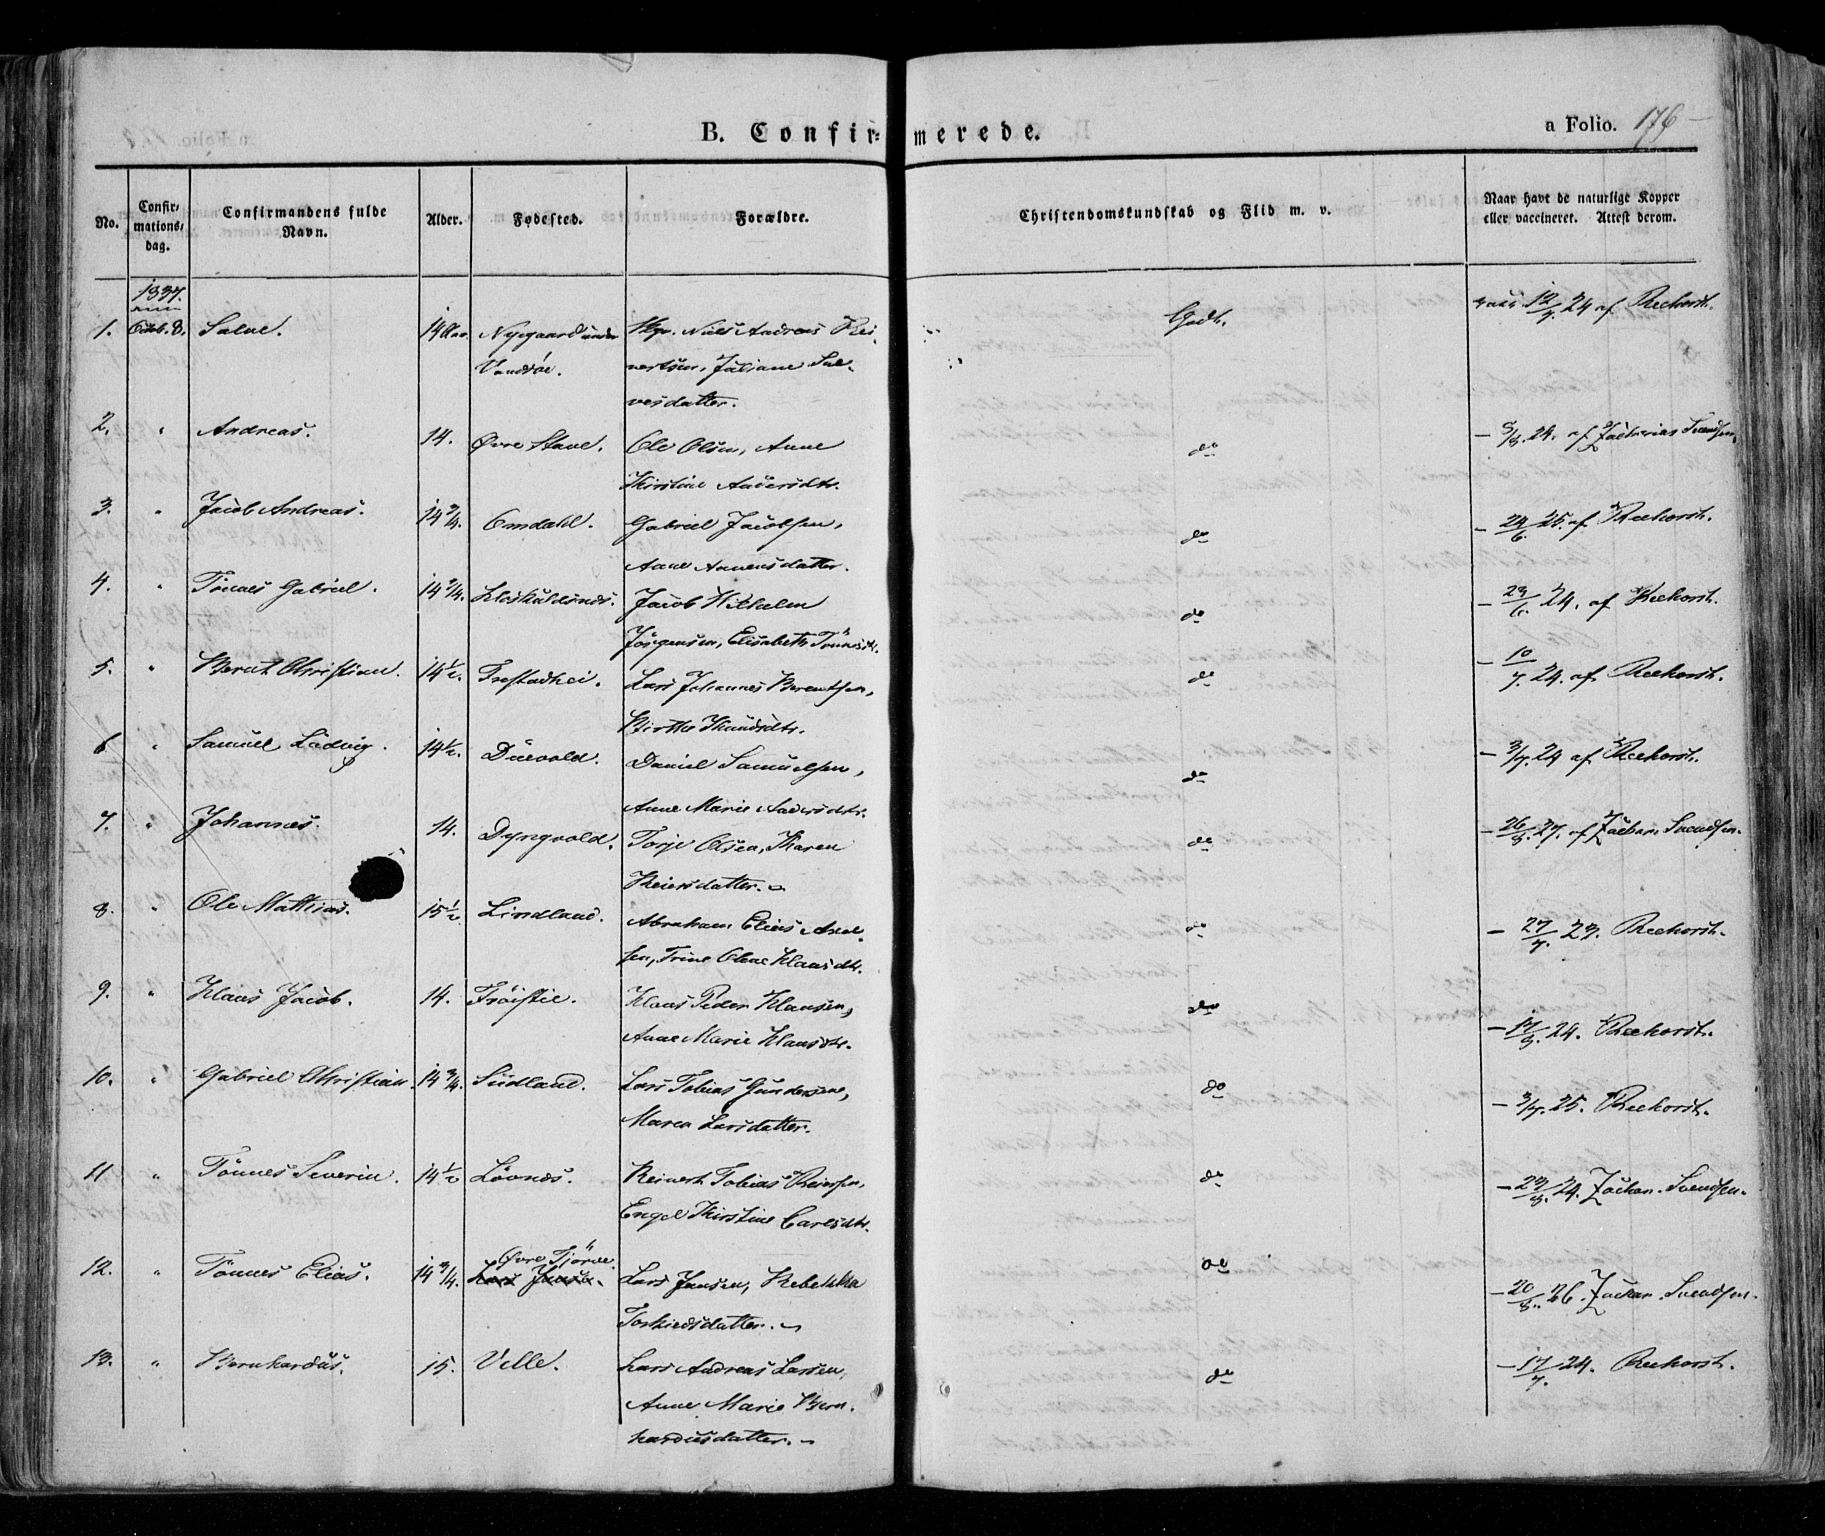 B. Confir=merede.
a Folio. 176
No.
Confir-
mations-
dag.
Confirmandens fulde
Navn.
Alder.
Fødested.
Forældre.
Christendomskundskab og Flid m. v.
Naar havt de naturlige Kopper
eller vaccineret. Attest derom.
1837.
1. Octob. 8. Salve. 14 Aar. Nygaard under Godt. 12/7. 24 af Reehorst.
Niels Andreas Rei-
Vandsøe. nertsen, Juliane Sal-
vesdatter.
2. " Andreas. 14. Øvre Stave. Ole Olsen, Anne do — 5/8. 24. af Zacharias Svendsen.
Kirstine Andersdtr.
3. " Jacob Andreas. 14 3/4. Omdahl. Gabriel Jacobsen, do — 24/6. 25. af Reehorst.
Anne Annensdatter.
4. " Tønnes Gabriel. 14 3/4. Jacob Wilhelm do — 29/6. 24. af Reehorst.
Jørgensen, Elisabeth Tønnesdtr.
5. " Bernt Christian. 14 1/2. Frestadhei. Lars Johannes Berentsen, do — 10/7. 24. af Reehorst.
Birthe Knudsdtr.
6 " Samuel Ludvig. 14 1/2. Duevold. Daniel Samuelsen, do — 3/7. 24 af Reehorst.
Anne Marie Andersdtr.
7. " Johannes. 14. Dyngvold. Torje Olsen, Karen do — 26/8. 27. af Zachar. Svendsen.
Reiersdatter.
8. " Ole Mathias. 15 1/2 Lindland. Abraham Elias Axel- do — 27/7. 23. Reehorst.
sen, Trine Olene Klausdtr.
9. " Klaus Jacob. 14. Frøistie. Klaus Peder Klausen, do — 17/8. 24. Reehorst.
Anne Marie Klausdtr.
10. " Gabriel Christian. 14 3/4. Sudland. Lars Tobias Gundersen, do — 3/7. 25. Reehorst.
Maren Larsdatter.
11 " Tønnes Severin. 14 1/2 Løvnes. Reinert Tobias Reiersen, do — 23/8. 24. Zachar. Svendsen.
Engel Kirstine Carlsdtr.
12. " Tønnes Elias. 14 3/4. Øvre Tjørve. Lars Jansen, Rebekka do — 20/8. 26. Zachar. Svendsen.
Lars Jansen.
Torkieldsdatter.
13. " Bernhardus. 15. Velle. Lars Andreas Larsen, do — 17/7. 24. Reehorst.
Anne Marie Bern-
hardusdatter.